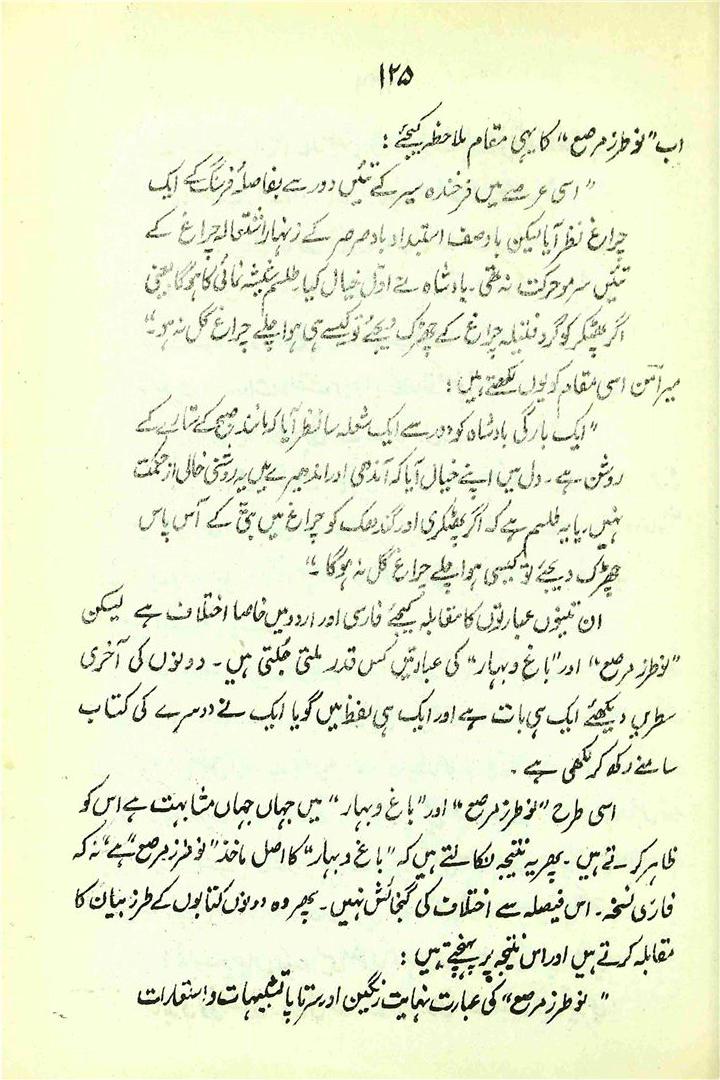 ۱۲۵
اب "نوطرز مرصع" کا یہی مقام ملاحظہ کیجئے :
"اسی عرصے میں فرخندہ سیر کے تئیں دور سے بفاصلۂ فرسنگ کے ایک
چراغ نظر آیا لیکن باوصف استبداد باد صرصر کے زنہار اشتعالہ چراغ کے
تئیں سرمو حرکت نہ تھی۔ بادشاہ نے اوّل خیال کیا۔ طلسم شیشہ نمائی کا ہوگا یعنی
اگر پھٹکر کو گرد فتیلہ چراغ کے چھڑک دیجئے تو کیسے ہی ہوا چلے چراغ گل نہ ہو۔"
میر امّن اسی مقام کو یوں لکھتے ہیں :
"ایک بارگی بادشاہ کو دور سے ایک شعلہ سا نظر آیا کہ مانند صبح کے ستارے کے
روشن ہے۔ دل میں اپنے خیال آیا کہ آندھی اور اندھیرے میں یہ روشنی خالی از حکمت
نہیں۔ یا یہ طلسم ہے کہ اگر پھٹکری اور گندھک کو چراغ میں بتّی کے آس پاس
چھڑک دیجئے تو کیسی ہوا چلے چراغ گل نہ ہوگا۔"
ان تینوں عبارتوں کا مقابلہ کیجئے فارسی اور اردو میں خاصا اختلاف ہے لیکن
"نوطرز مرصع" اور "باغ و بہار" کی عبارتیں کس قدر ملتی جُلتی ہیں۔ دونوں کی آخری
سطریں دیکھئے ایک ہی بات ہے اور ایک ہی لفظ ہیں گویا ایک نے دوسرے کی کتاب
سامنے رکھ کر لکھی ہے ۔
اسی طرح "نوطرز مرصع" اور "باغ و بہار" میں جہاں جہاں مشابہت ہے اس کو
ظاہر کرتے ہیں۔ پھر یہ نتیجہ نکالتے ہیں کہ "باغ و بہار" کا اصل ماخذ "نوطرز مرصع" ہے، نہ کہ
فارسی نسخہ۔ اس فیصلہ سے اختلاف کی گنجائش نہیں۔ پھر وہ دونوں کتابوں کے طرز بیان کا
مقابلہ کرتے ہیں اور اس نتیجہ پر پہنچتے ہیں :
"نوطرز مرصع" کی عبارت نہایت رنگین اور سرتا پا تشبیہات و استعارات